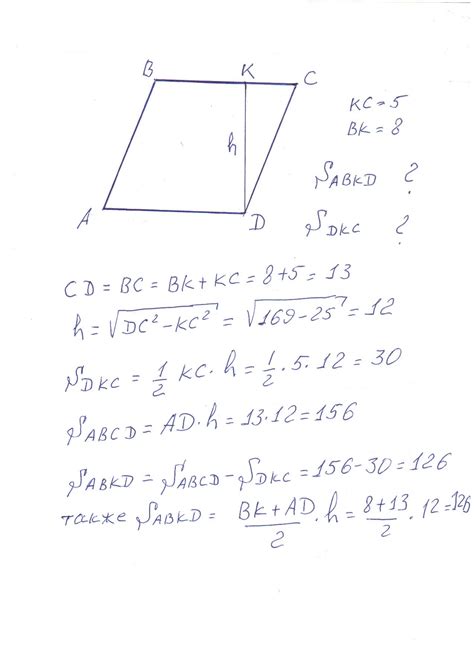 B K C
h
A D
KC=5
BK=8
S_ABKD ?
S_DKC ?
CD = BC = BK + KC = 8+5 = 13
h = √(DC² - KC²) = √(169 - 25) = 12
S_DKC = 1/2 KC · h = 1/2 · 5 · 12 = 30
S_ABCD = AD · h = 13 · 12 = 156
S_ABKD = S_ABCD - S_DKC = 156 - 30 = 126
также S_ABKD = (BK + AD)/2 · h = (8+13)/2 · 12 = 126